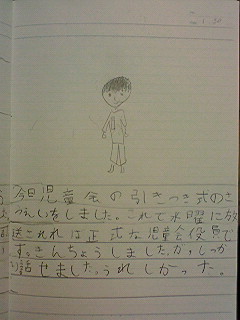 今日児童会の引きつぎ式のさ
つえいをしました。これで水曜に放
送されれば正式な児童会役員で
す。きんちょうしましたが、しっか
り話せました。うれしかった。